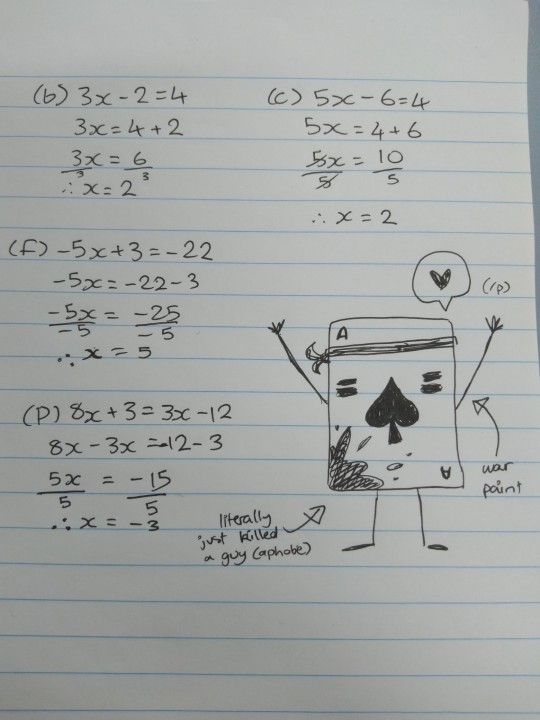 (b) 3x - 2 = 4
3x = 4 + 2
3x/3 = 6/3
∴ x = 2
(c) 5x - 6 = 4
5x = 4 + 6
5x/5 = 10/5
∴ x = 2
(f) -5x + 3 = -22
-5x = -22 - 3
-5x/-5 = -25/-5
∴ x = 5
(p) 8x + 3 = 3x - 12
8x - 3x = -12 - 3
5x/5 = -15/5
∴ x = -3
(/p)
A
A
war
paint
literally
just killed
a guy (aphobe)